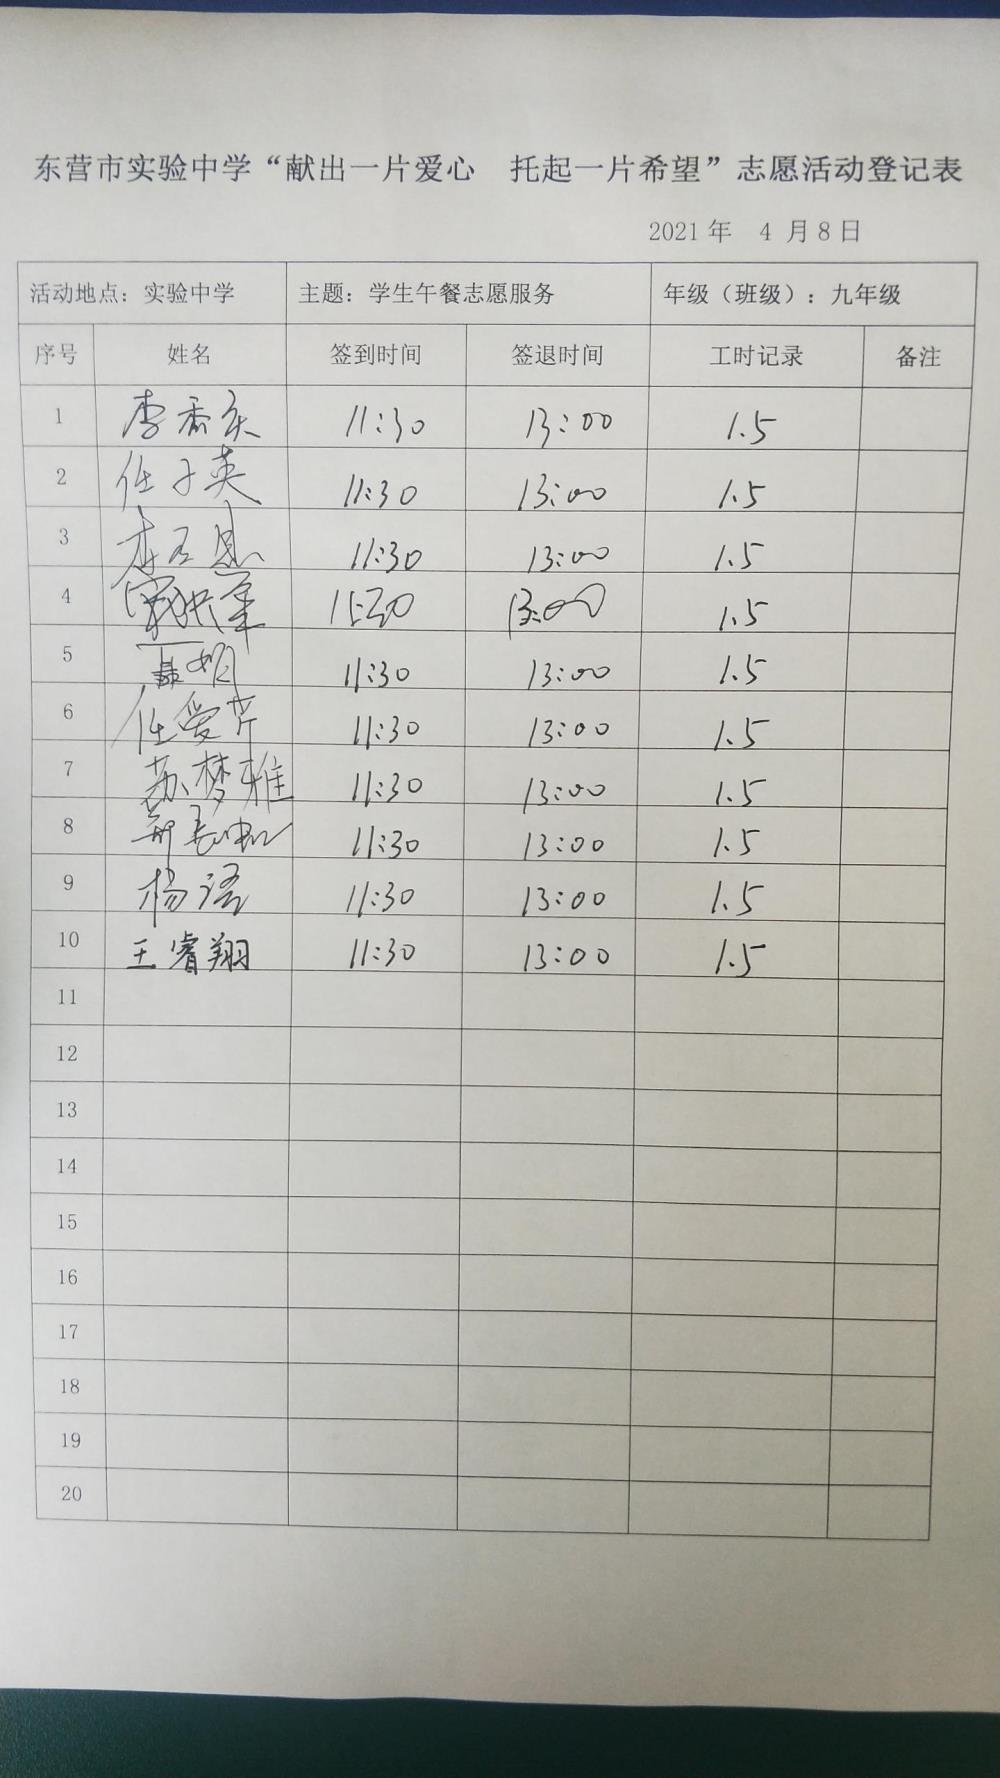 东营市实验中学“献出一片爱心 托起一片希望”志愿活动登记表
2021 年 4 月 8 日
活动地点：实验中学 主题：学生午餐志愿服务 年级（班级）：九年级
序号 姓名 签到时间 签退时间 工时记录 备注
1 李香庆 11:30 13:00 1.5
2 任子英 11:30 13:00 1.5
3 李 11:30 13:00 1.5
4 11:30 13:00 1.5
5 聂娟 11:30 13:00 1.5
6 任爱芹 11:30 13:00 1.5
7 苏梦雅 11:30 13:00 1.5
8 11:30 13:00 1.5
9 杨洁 11:30 13:00 1.5
10 王睿翔 11:30 13:00 1.5
11
12
13
14
15
16
17
18
19
20